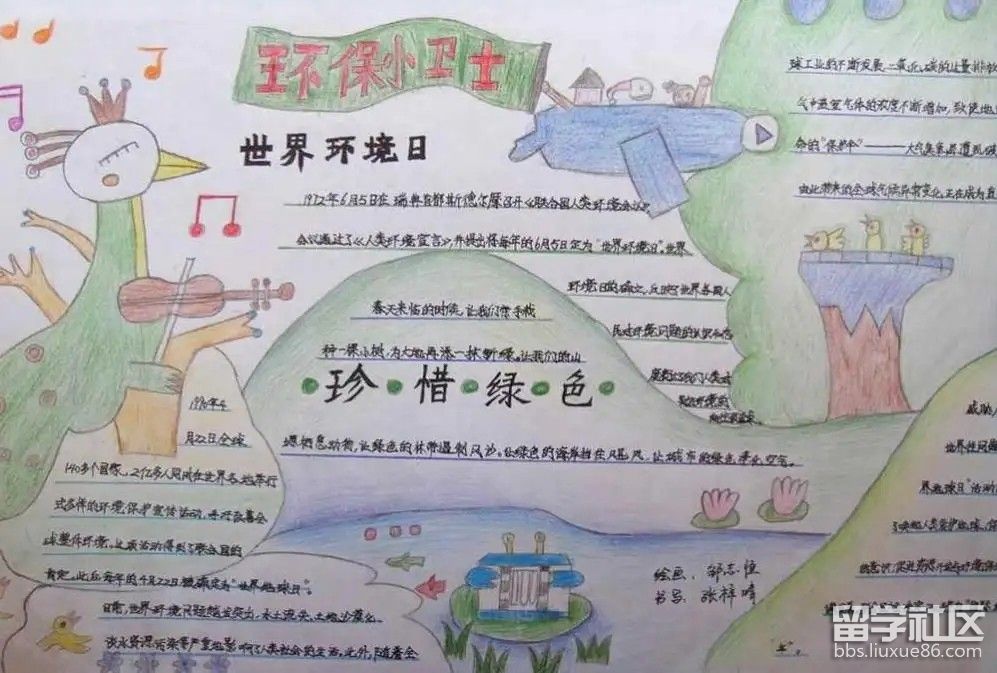 环保小卫士
世界环境日
1972年6月5日在瑞典首都斯德尔摩召开《联合国人类环境会议》
会议通过了《人类环境宣言》并提出将每年的6月5日定为"世界环境日"。世界
环境日的确定,反映了世界各国人
民对环境问题的认识和态
球工业的不断发展,二氧化碳的过量排放
气中温室气体的浓度不断增加,致使地
命的"保护伞"————大气臭氧层遭到破
由此带来的全球气候异常变化正在成为直
春天来临的时候,让我们携手栽
种一棵小树,为大地再添一抹新绿。让我们的山
珍·惜·绿·色
让绿色的林带遏制风沙。让绿色的海岸挡住风暴,让城市的绿色净化空气。
1990年4
月22日全球
140多个国家、2亿多人同时在世界各地举行
式多样的环境保护宣传活动,
球整体环境。这项活动得到了联合国的
肯定。此后每年的4月22日被确定为"世界地球日"。
日前,世界环境问题越发突出,水土流失、土地沙漠化、
淡水资源污染等严重地影响了人类社会的生活。此外,随着全
威胁人
世界性问题
界地球日"活动
绘画:邹志恒
书写:张梓晴
留学社区
bbs.liuxue86.com